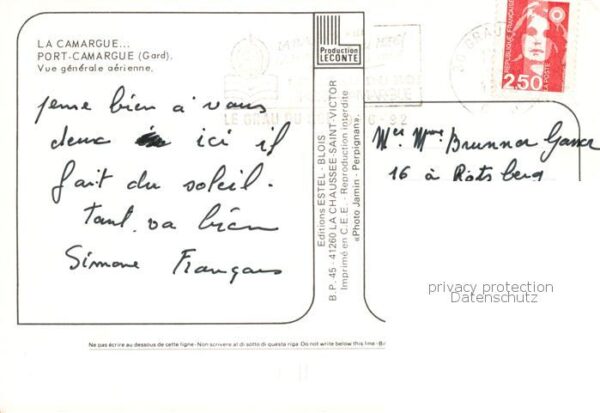 LA CAMARGUE...
PORT-CAMARGUE (Gard).
Vue générale aérienne.
pense bien à vous
deux ici il
fait du soleil.
tout va bien
Simone François
Production
LECONTE
Editions ESTEL - BLOIS
B.P. 45 - 41260 LA CHAUSSEE-SAINT-VICTOR
Imprimé en C.E.E. - Reproduction interdite
«Photo Jamin - Perpignan».
LE GRAU DU
REPUBLIQUE FRANÇAISE
LA POSTE
2,50
Mr Mme Brunner
16 à
privacy protection
Datenschutz
Ne pas écrire au dessous de cette ligne - Non scrivere al di sotto di questa riga Do not write below this line -